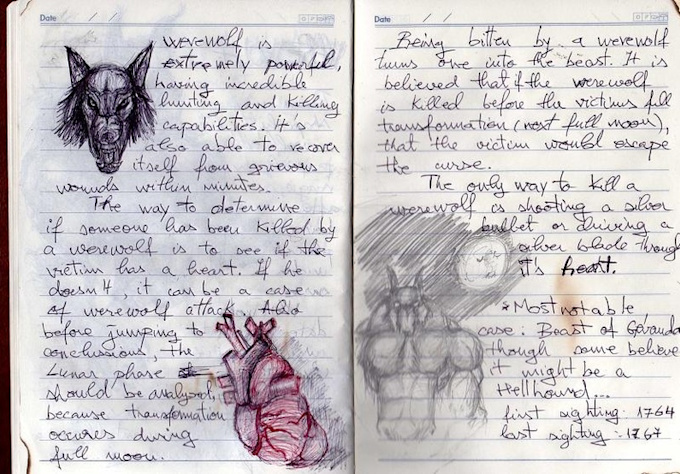 Date / /
werewolf is
extremely powerful,
having incredible
hunting and killing
capabilities. It's
also able to recover
itself from grievous
wounds within minutes.
The way to determine
if someone has been killed by
a werewolf is to see if the
victim has a heart. If he
doesn't, it can be a case
of werewolf attack. Also
before jumping to
conclussions, the
Lunar phase
should be analysed,
because transformation
occures during
full moon.
Date / /
Being bitten by a werewolf
turns one into the beast. It is
believed that if the werewolf
is killed before the victims full
transformation (next full moon),
that the victim would escape
the curse.
The only way to kill a
werewolf is shooting a silver
bullet or driving a
silver blade through
it's heart.
*Most notable
case: Beast of Gévaudan
though some believe
it might be a
Hellhound...
first sighting: 1764
last sighting: 1767